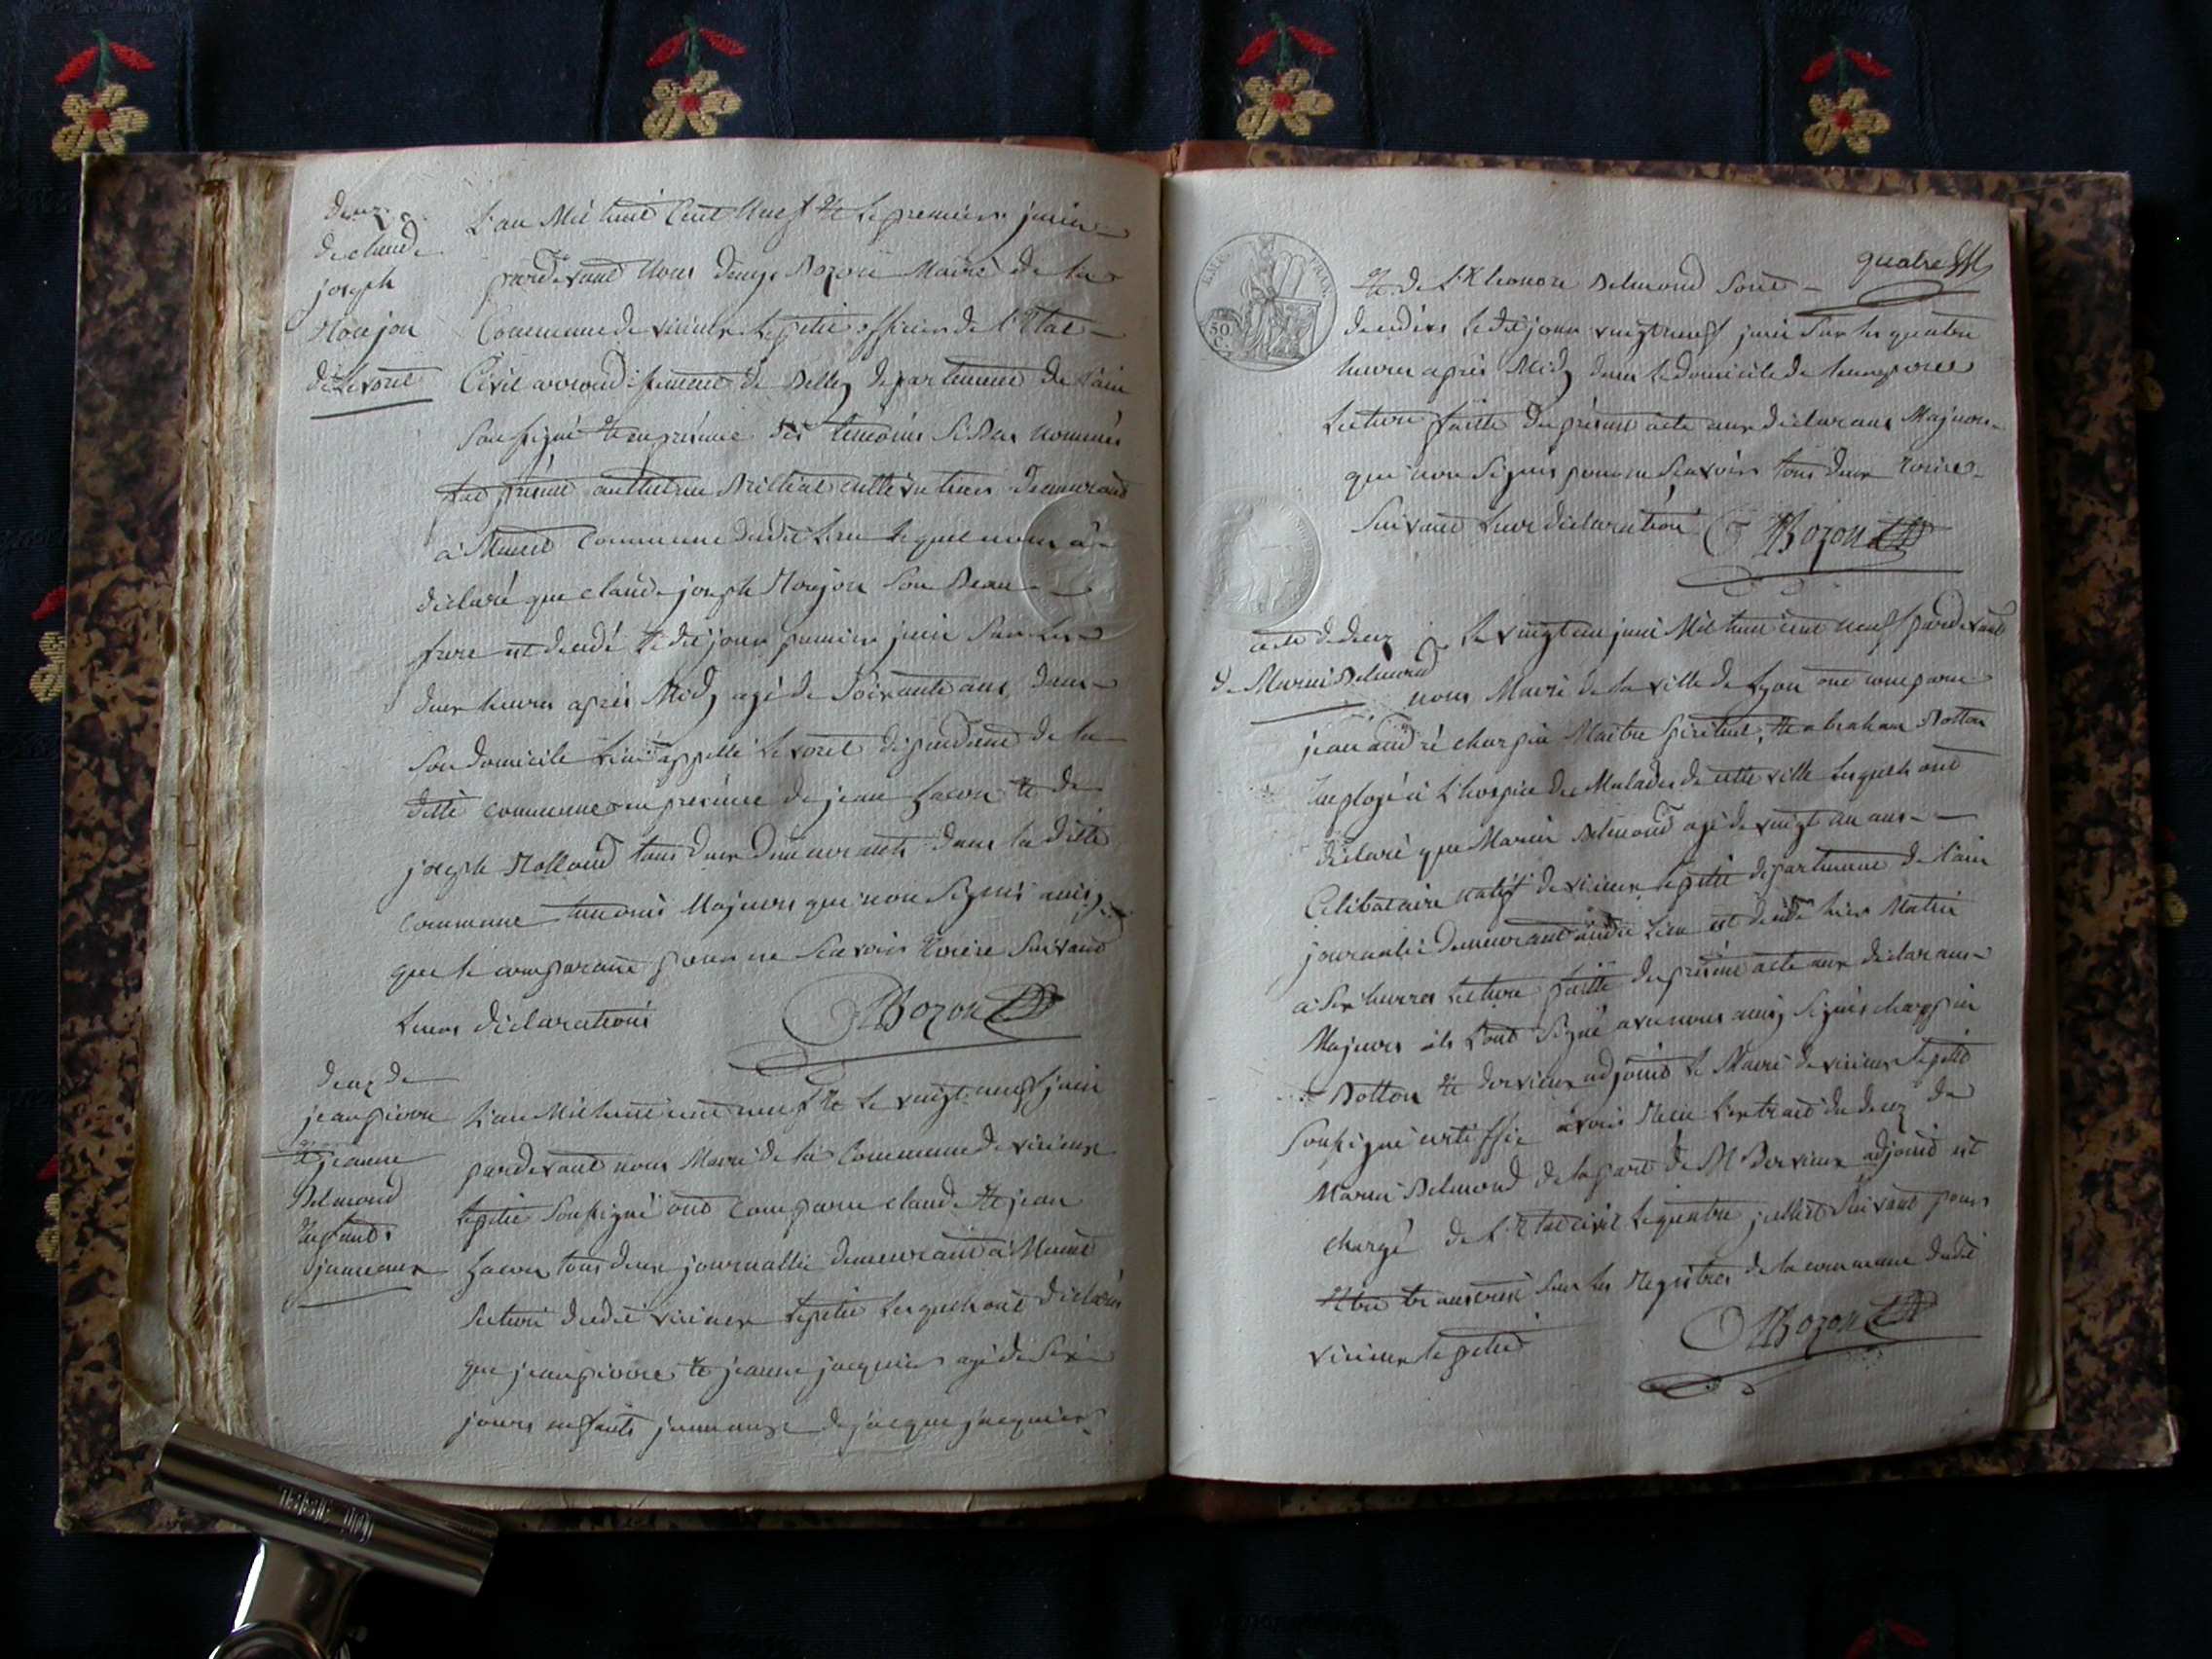 decez
de claude
joseph
Roujon
de Levoret
L'an Mil huit Cent Neuf et le premier juin
pardevant Nous Denys Bozon Maire de la
Commune de virieux le petit officier de l'Etat
Civil arrondissement de Belley departement de l'ain
Soussigné et en présence des témoins Si Bas nommés
anthelme cultivateur demeurant
à Munet Commune dudit lieu lequel nous a
déclaré que claude joseph Roujon Son Beau
frere est decedé le dit jour premier juin Sur les
deux heures après Midy agé de Soixante ans dans
Son domicile lieu appellé Levoret dépendant de la
ditte commune en presence de jean et de
joseph Rolland tous deux demeurants dans la ditte
Commune temoins Majeurs qui n'on Signés ainsy
que le comparant pour ne Scavoir Ecrire Suivant
Leurs déclarations
Bozon
decez de
jean pierre
et jeanne
Belmond
Enfants
jumeaux
L'an Mil huit cent neuf et le vingt neuf juin
pardevant nous Maire de la Commune de virieux
le petit Soussigné ont comparu claude et jean
tous deux journallié demeurant à Munet
Section dudit virieux le petit lesquels ont déclarés
que jean pierre et jeanne jacquier agé de Six
jours enfants jumeaux de jacque jacquier
quatre
EMP. FRAN.
50 C.
et de L'Eleonore Belmond Sont
decedés le dit jour vingt neuf juin Sur les quatre
heures après Midy dans le domicile de leur pere
Lecture faitte du présent acte aux déclarans Majeurs
qui n'on Signés pour ne Scavoir tous deux Ecrire
Suivant leur déclaration
Bozon
acte de decez
de Marin Belmond
Le vingt un juin Mil huit cent neuf pardevant
nous Maire de la ville de Lyon ont comparu
jean andré charpin Maitre Spirituel, et abraham Botton
Employé à L'hospice des Malades de cette ville lesquels ont
déclaré que Marin Belmond agé de vingt un ans
Celibataire natif de virieux le petit departement de l'ain
journalié demeurant audit lieu est decedé hier Matin
à Six heures lecture faitte du présent acte aux déclarans
Majeurs ils l'ont Signé avec nous ainsy Signés charpin
Botton et dervieux adjoint le Maire de virieux le petit
Soussigné certiffie avoir Recu L'extrait du decez de
Marin Belmond de la part de Mr Dervieux adjoint et
chargé de L'Etat civil le quatre juillet Suivant pour
Etre transcrit Sur les Registres de la commune dudit
virieux le petit
Bozon